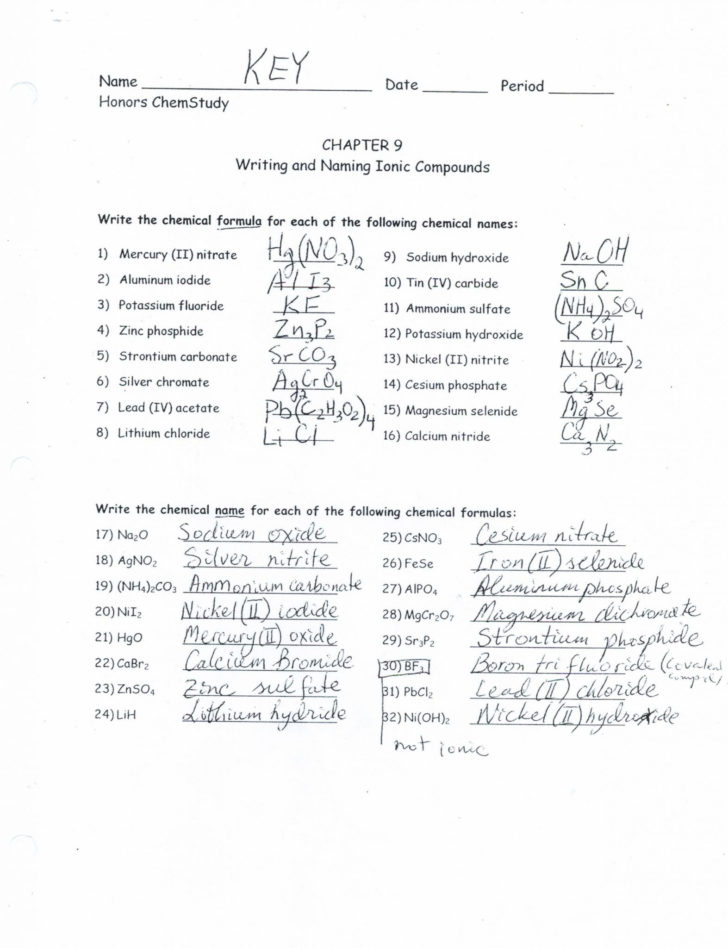 Name KEY Date Period
Honors ChemStudy
CHAPTER 9
Writing and Naming Ionic Compounds
Write the chemical formula for each of the following chemical names:
1) Mercury (II) nitrate Hg(NO3)2
2) Aluminum iodide AlI3
3) Potassium fluoride KF
4) Zinc phosphide Zn3P2
5) Strontium carbonate SrCO3
6) Silver chromate Ag2CrO4
7) Lead (IV) acetate Pb(C2H3O2)4
8) Lithium chloride LiCl
9) Sodium hydroxide NaOH
10) Tin (IV) carbide SnC
11) Ammonium sulfate (NH4)2SO4
12) Potassium hydroxide KOH
13) Nickel (II) nitrite Ni(NO2)2
14) Cesium phosphate Cs3PO4
15) Magnesium selenide MgSe
16) Calcium nitride Ca3N2
Write the chemical name for each of the following chemical formulas:
17) Na2O Sodium oxide
18) AgNO2 Silver nitrite
19) (NH4)2CO3 Ammonium carbonate
20) NiI2 Nickel (II) iodide
21) HgO Mercury (II) oxide
22) CaBr2 Calcium Bromide
23) ZnSO4 Zinc sulfate
24) LiH Lithium hydride
25) CsNO3 Cesium nitrate
26) FeSe Iron (II) selenide
27) AlPO4 Aluminum phosphate
28) MgCr2O7 Magnesium dichromate
29) Sr3P2 Strontium phosphide
30) BF3 Boron trifluoride (Covalent
31) PbCl2 Lead (II) chloride
32) Ni(OH)2 Nickel (II) hydroxide
not ionic